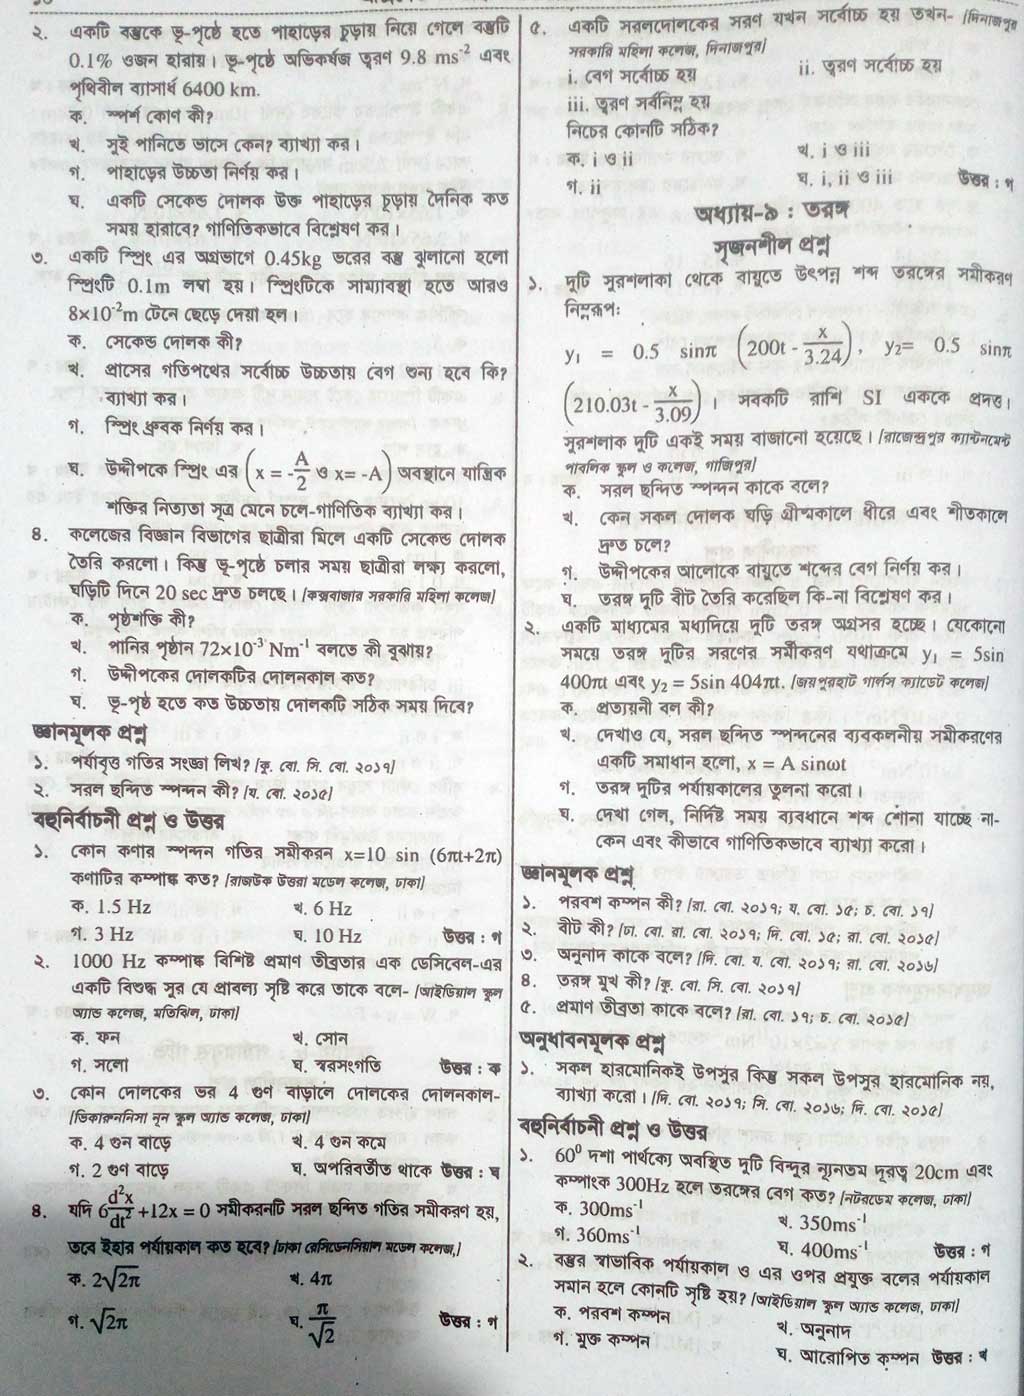 ২. একটি বস্তুকে ভূ-পৃষ্ঠে হতে পাহাড়ের চুড়ায় নিয়ে গেলে বস্তুটি
0.1% ওজন হারায়। ভূ-পৃষ্ঠে অভিকর্ষজ ত্বরণ 9.8 ms⁻² এবং
পৃথিবীল ব্যাসার্ধ 6400 km.
ক. স্পর্শ কোণ কী?
খ. সুই পানিতে ভাসে কেন? ব্যাখ্যা কর।
গ. পাহাড়ের উচ্চতা নির্ণয় কর।
ঘ. একটি সেকেন্ড দোলক উক্ত পাহাড়ের চুড়ায় দৈনিক কত
সময় হারাবে? গাণিতিকভাবে বিশ্লেষণ কর।
৩. একটি স্প্রিং এর অগ্রভাগে 0.45kg ভরের বস্তু ঝুলানো হলো
স্প্রিংটি 0.1m লম্বা হয়। স্প্রিংটিকে সাম্যাবস্থা হতে আরও
8×10⁻²m টেনে ছেড়ে দেয়া হল।
ক. সেকেন্ড দোলক কী?
খ. প্রাসের গতিপথের সর্বোচ্চ উচ্চতায় বেগ শুন্য হবে কি?
ব্যাখ্যা কর।
গ. স্প্রিং ধ্রুবক নির্ণয় কর।
ঘ. উদ্দীপকে স্প্রিং এর (x = -A/2 ও x= -A) অবস্থানে যান্ত্রিক
শক্তির নিত্যতা সূত্র মেনে চলে-গাণিতিক ব্যাখ্যা কর।
৪. কলেজের বিজ্ঞান বিভাগের ছাত্রীরা মিলে একটি সেকেন্ড দোলক
তৈরি করলো। কিন্তু ভূ-পৃষ্ঠে চলার সময় ছাত্রীরা লক্ষ্য করলো,
ঘড়িটি দিনে 20 sec দ্রুত চলছে। [কক্সবাজার সরকারি মহিলা কলেজ]
ক. পৃষ্ঠশক্তি কী?
খ. পানির পৃষ্ঠান 72×10⁻³ Nm⁻¹ বলতে কী বুঝায়?
গ. উদ্দীপকের দোলকটির দোলনকাল কত?
ঘ. ভূ-পৃষ্ঠ হতে কত উচ্চতায় দোলকটি সঠিক সময় দিবে?
জ্ঞানমূলক প্রশ্ন
১. পর্যাবৃত্ত গতির সংজ্ঞা লিখ? [কু. বো. সি. বো. ২০১৭]
২. সরল ছন্দিত স্পন্দন কী? [য. বো. ২০১৫]
বহুনির্বাচনী প্রশ্ন ও উত্তর
১. কোন কণার স্পন্দন গতির সমীকরন x=10 sin (6πt+2π)
কণাটির কম্পাঙ্ক কত? [রাজউক উত্তরা মডেল কলেজ, ঢাকা]
ক. 1.5 Hz খ. 6 Hz
গ. 3 Hz ঘ. 10 Hz উত্তর : গ
২. 1000 Hz কম্পাঙ্ক বিশিষ্ট প্রমাণ তীব্রতার এক ডেসিবেল-এর
একটি বিশুদ্ধ সুর যে প্রাবল্য সৃষ্টি করে তাকে বলে- [আইডিয়াল স্কুল
অ্যান্ড কলেজ, মতিঝিল, ঢাকা]
ক. ফন খ. সোন
গ. সলো ঘ. স্বরসংগতি উত্তর : ক
৩. কোন দোলকের ভর 4 গুণ বাড়ালে দোলকের দোলনকাল-
[ভিকারুননিসা নূন স্কুল অ্যান্ড কলেজ, ঢাকা]
ক. 4 গুন বাড়ে খ. 4 গুন কমে
গ. 2 গুণ বাড়ে ঘ. অপরিবর্তীত থাকে উত্তর : ঘ
৪. যদি 6 d²x/dt² +12x = 0 সমীকরনটি সরল ছন্দিত গতির সমীকরণ হয়,
তবে ইহার পর্যায়কাল কত হবে? [ঢাকা রেসিডেনসিয়াল মডেল কলেজ,]
ক. 2√2π খ. 4π
গ. √2π ঘ. π/√2 উত্তর : গ
৫. একটি সরলদোলকের সরণ যখন সর্বোচ্চ হয় তখন- [দিনাজপুর
সরকারি মহিলা কলেজ, দিনাজপুর]
i. বেগ সর্বোচ্চ হয় ii. ত্বরণ সর্বোচ্চ হয়
iii. ত্বরণ সর্বনিম্ন হয়
নিচের কোনটি সঠিক?
ক. i ও ii খ. i ও iii
গ. ii ঘ. i, ii ও iii উত্তর : গ
অধ্যায়-৯ : তরঙ্গ
সৃজনশীল প্রশ্ন
১. দুটি সুরশলাকা থেকে বায়ুতে উৎপন্ন শব্দ তরঙ্গের সমীকরণ
নিম্নরূপঃ
y₁ = 0.5 sinπ (200t - x/3.24), y₂= 0.5 sinπ
(210.03t - x/3.09)। সবকটি রাশি SI এককে প্রদত্ত।
সুরশলাক দুটি একই সময় বাজানো হয়েছে। [রাজেন্দ্রপুর ক্যান্টনমেন্ট
পাবলিক স্কুল ও কলেজ, গাজিপুর]
ক. সরল ছন্দিত স্পন্দন কাকে বলে?
খ. কেন সকল দোলক ঘড়ি গ্রীষ্মকালে ধীরে এবং শীতকালে
দ্রুত চলে?
গ. উদ্দীপকের আলোকে বায়ুতে শব্দের বেগ নির্ণয় কর।
ঘ. তরঙ্গ দুটি বীট তৈরি করেছিল কি-না বিশ্লেষণ কর।
২. একটি মাধ্যমের মধ্যদিয়ে দুটি তরঙ্গ অগ্রসর হচ্ছে। যেকোনো
সময়ে তরঙ্গ দুটির সরণের সমীকরণ যথাক্রমে y₁ = 5sin
400πt এবং y₂ = 5sin 404πt. [জয়পুরহাট গার্লস ক্যাডেট কলেজ]
ক. প্রত্যয়নী বল কী?
খ. দেখাও যে, সরল ছন্দিত স্পন্দনের ব্যবকলনীয় সমীকরণের
একটি সমাধান হলো, x = A sinωt
গ. তরঙ্গ দুটির পর্যায়কালের তুলনা করো।
ঘ. দেখা গেল, নির্দিষ্ট সময় ব্যবধানে শব্দ শোনা যাচ্ছে না-
কেন এবং কীভাবে গাণিতিকভাবে ব্যাখ্যা করো।
জ্ঞানমূলক প্রশ্ন
১. পরবশ কম্পন কী? [রা. বো. ২০১৭; য. বো. ১৫; চ. বো. ১৭]
২. বীট কী? [ঢা. বো. রা. বো. ২০১৭; দি. বো. ১৫; রা. বো. ২০১৫]
৩. অনুনাদ কাকে বলে? [দি. বো. য. বো. ২০১৭; রা. বো. ২০১৬]
৪. তরঙ্গ মুখ কী? [কু. বো. সি. বো. ২০১৭]
৫. প্রমাণ তীব্রতা কাকে বলে? [রা. বো. ১৭; চ. বো. ২০১৫]
অনুধাবনমূলক প্রশ্ন
১. সকল হারমোনিকই উপসুর কিন্তু সকল উপসুর হারমোনিক নয়,
ব্যাখ্যা করো। [দি. বো. ২০১৭; সি. বো. ২০১৬; দি. বো. ২০১৫]
বহুনির্বাচনী প্রশ্ন ও উত্তর
১. 60⁰ দশা পার্থক্যে অবস্থিত দুটি বিন্দুর ন্যূনতম দূরত্ব 20cm এবং
কম্পাংক 300Hz হলে তরঙ্গের বেগ কত? [নটরডেম কলেজ, ঢাকা]
ক. 300ms⁻¹ খ. 350ms⁻¹
গ. 360ms⁻¹ ঘ. 400ms⁻¹ উত্তর : গ
২. বস্তুর স্বাভাবিক পর্যায়কাল ও এর ওপর প্রযুক্ত বলের পর্যায়কাল
সমান হলে কোনটি সৃষ্টি হয়? [আইডিয়াল স্কুল অ্যান্ড কলেজ, ঢাকা]
ক. পরবশ কম্পন খ. অনুনাদ
গ. মুক্ত কম্পন ঘ. আরোপিত কম্পন উত্তর : খ